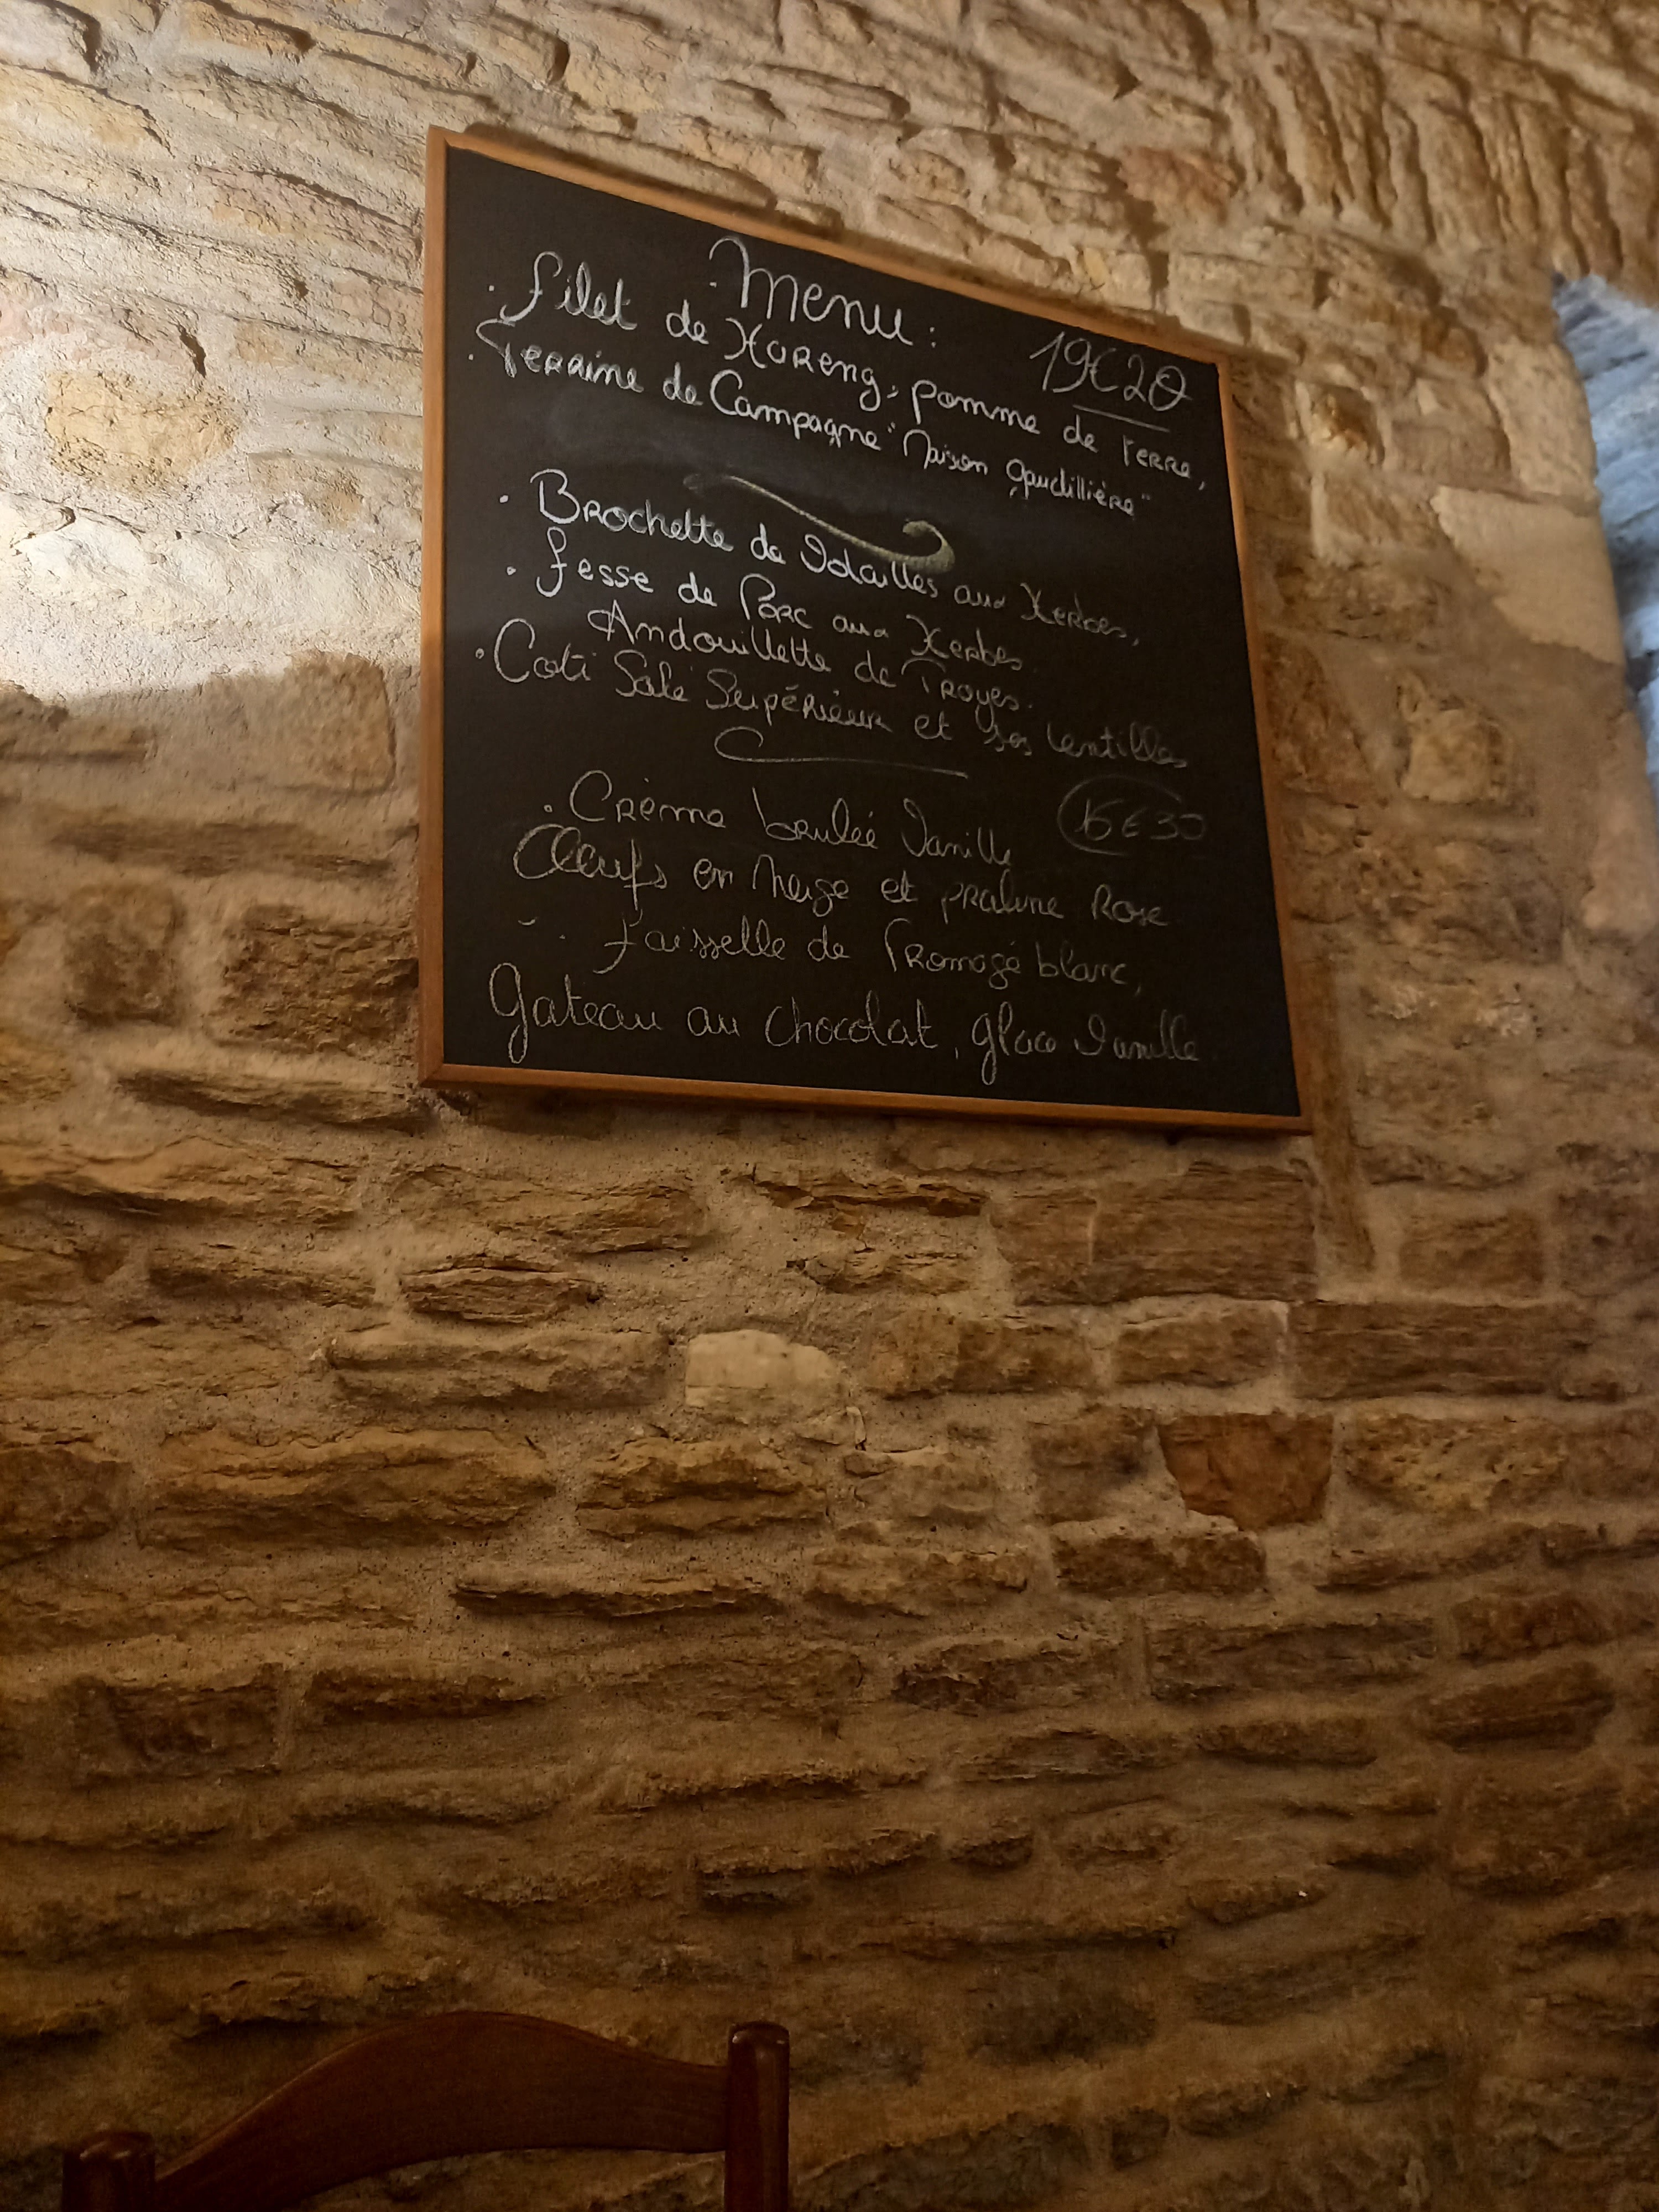 Menu : 19€20
· Filet de Hareng, pomme de Terre,
· Terrine de Campagne "Maison Gaudillière"
· Brochette de Volailles aux Herbes,
· Fesse de Porc aux Herbes.
Andouillette de Troyes.
· Coti Salé Supérieur et ses lentilles
16€30
· Crème brulée Vanille
Oeufs en Neige et praline Rose
Faisselle de Fromage blanc,
Gateau au chocolat, glace Vanille